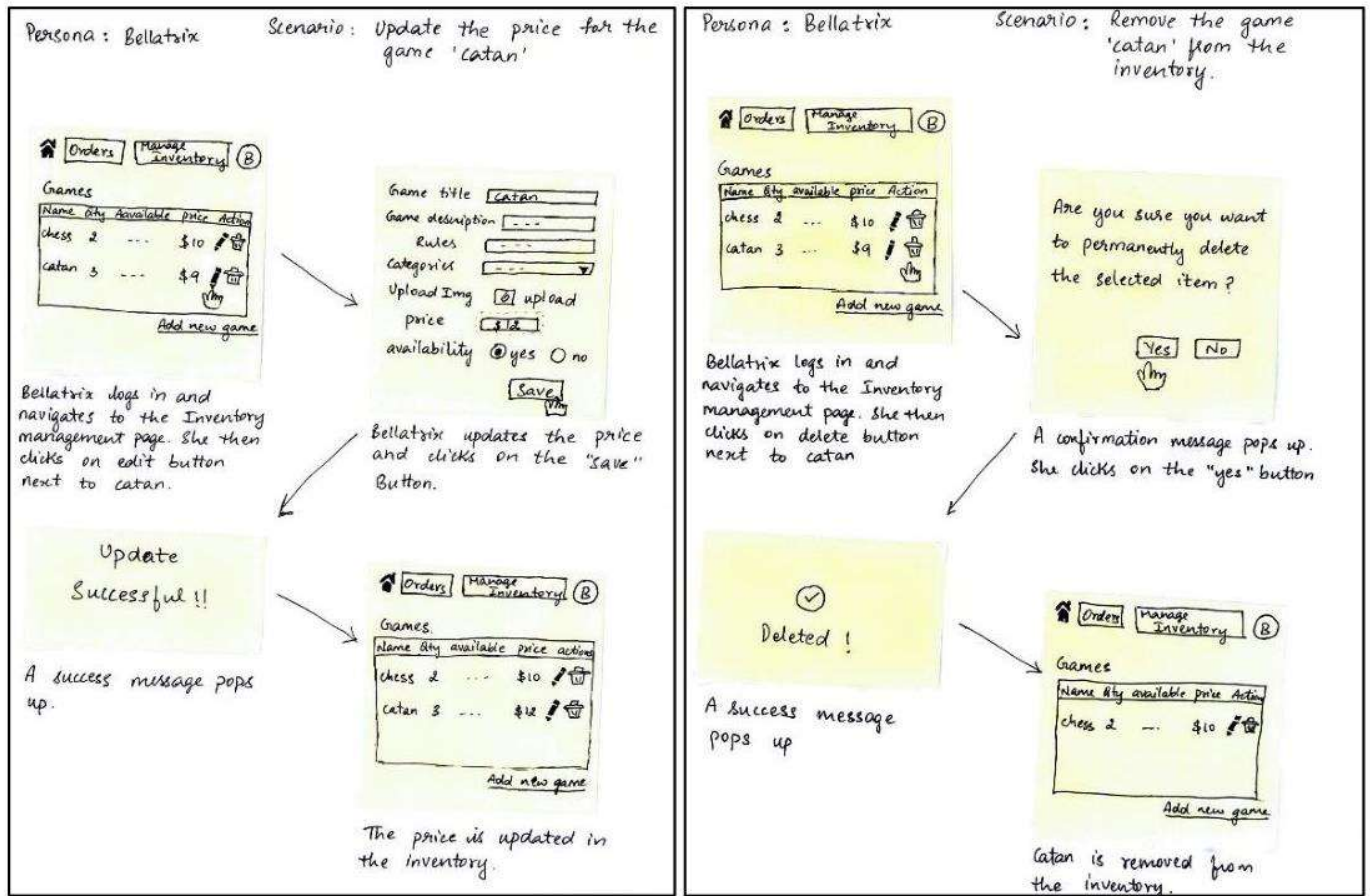 Persona : Bellatrix
Scenario : Update the price for the
game 'catan'
Orders
Manage
Inventory
B
Games
Name Qty Aavailable price Action
chess 2 --- $10
catan 3 --- $9
Add new game
Bellatrix logs in and
navigates to the Inventory
management page. She then
clicks on edit button
next to catan.
Game title catan
Game description ---
Rules ---
Categories ---
Upload Img upload
price $12
availability yes no
Save
Bellatrix updates the price
and clicks on the "save"
Button.
Update
Successful !!
A success message pops
up.
Orders
Manage
Inventory
B
Games
Name Qty available price actions
chess 2 --- $10
catan 3 --- $12
Add new game
The price is updated in
the inventory.
Persona : Bellatrix
Scenario : Remove the game
'catan' from the
inventory.
Orders
Manage
Inventory
B
Games
Name Qty available price Action
chess 2 --- $10
catan 3 --- $9
Add new game
Bellatrix logs in and
navigates to the Inventory
management page. She then
clicks on delete button
next to catan
Are you sure you want
to permanently delete
the selected item ?
Yes No
A confirmation message pops up.
She clicks on the "yes" button
Deleted !
A success message
pops up
Orders
Manage
Inventory
B
Games
Name Qty available price Action
chess 2 --- $10
Add new game
Catan is removed from
the inventory.